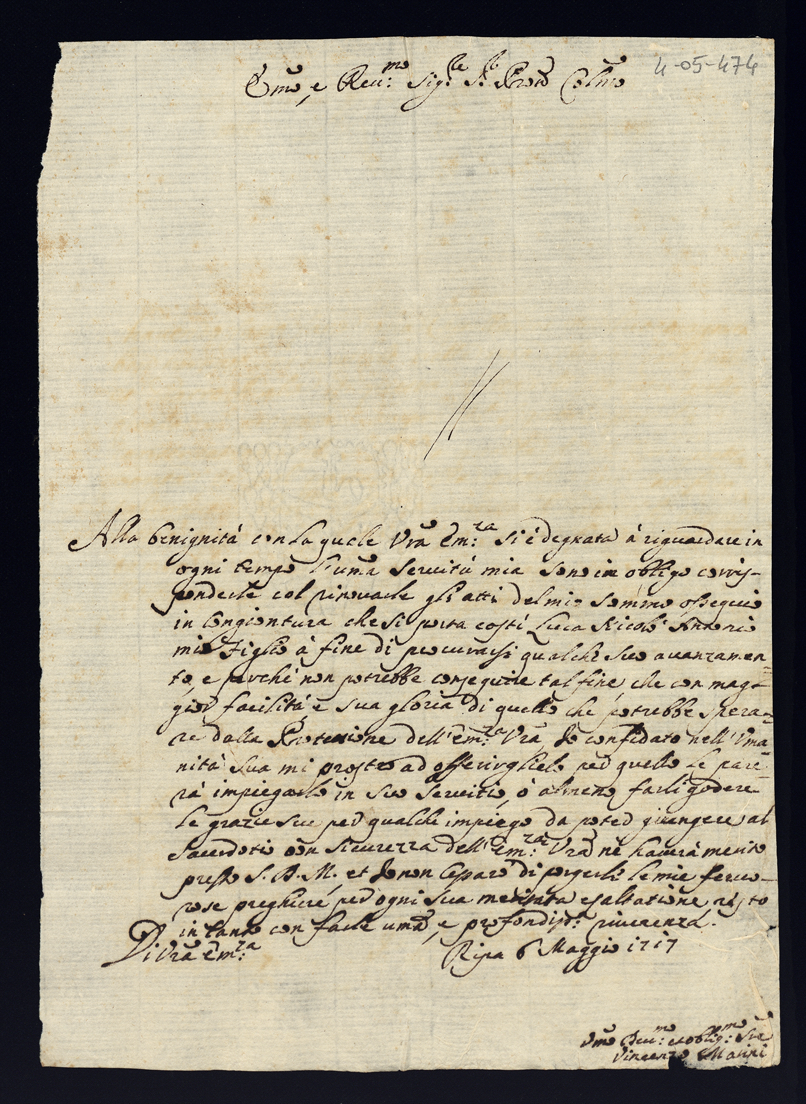 4-05-474
Emo e Reu:mo Sig:re S:r Prõe Colmo
Alla benignità con la quale Vrã Em:za si è degnata à riguardare in
ogni tempo l'uma servitù mia sono in obligo corris-
ponderle col rinovarle gli atti del mio sommo ossequio
in congiontura che si porta costì Luca Nicolò Antonio
mio Figlio à fine di procurarsi qualche suo avanzamen-
to, e perché non potrebbe conseguire tal fine che con mag-
gior facilità e sua gloria di quello che potrebbe spera-
re dalla Protezione dell'Em:za Vrã, Io confidato nell'Vma-
nità sua mi prostro ad offerirglielo per quello le pare-
rà impiegarlo in suo servitio, ò almeno farli godere
le grazie sue per qualche impiego da poter giungere al
Sacerdotio con sicurezza dell'Em:za Vrã nè haverà merito
presso S. D. M. et Io non cesparò di porgerli le mie fervo-
rose preghiere per ogni sua meritata esaltatione resto
in tanto con farle uma, e profondiss:a riverenza.
Di Vrã Em:za
Ripa 6 Maggio 1717
Vmo Deu:mo et oblig:mo Sre
Vincenzo Marini